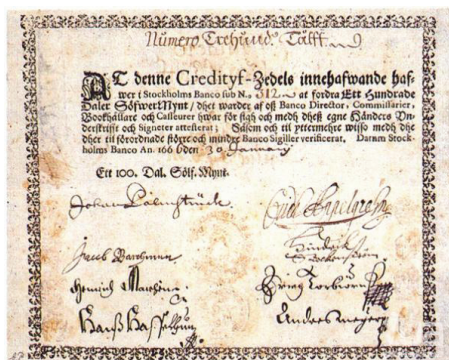 Numero Trehund: Tålff
AT denne Credityf-Zedels innehafwande haf-
wer i Stockholms Banco sub N.º 312 at fordra Ett Hundrade
Daler Sölfwer Mynt / dhet warder af oß Banco Director, Commissarier,
Bookhållare och Casseurer hwar för sigh och medh dheß egne Händers Un-
derskrifft och Signeter attesterat; Såsom och til yttermehre wisso medh dhe
dher til förordnade större och mindre Banco Sigiller verificerat, Datum Stock-
holms Banco An. 1666 den 30 January
Ett 100. Dal. Sölf. Mynt.
Johan Palmstruck
Jacob
Hinrich
Hanß
Anders Meyer